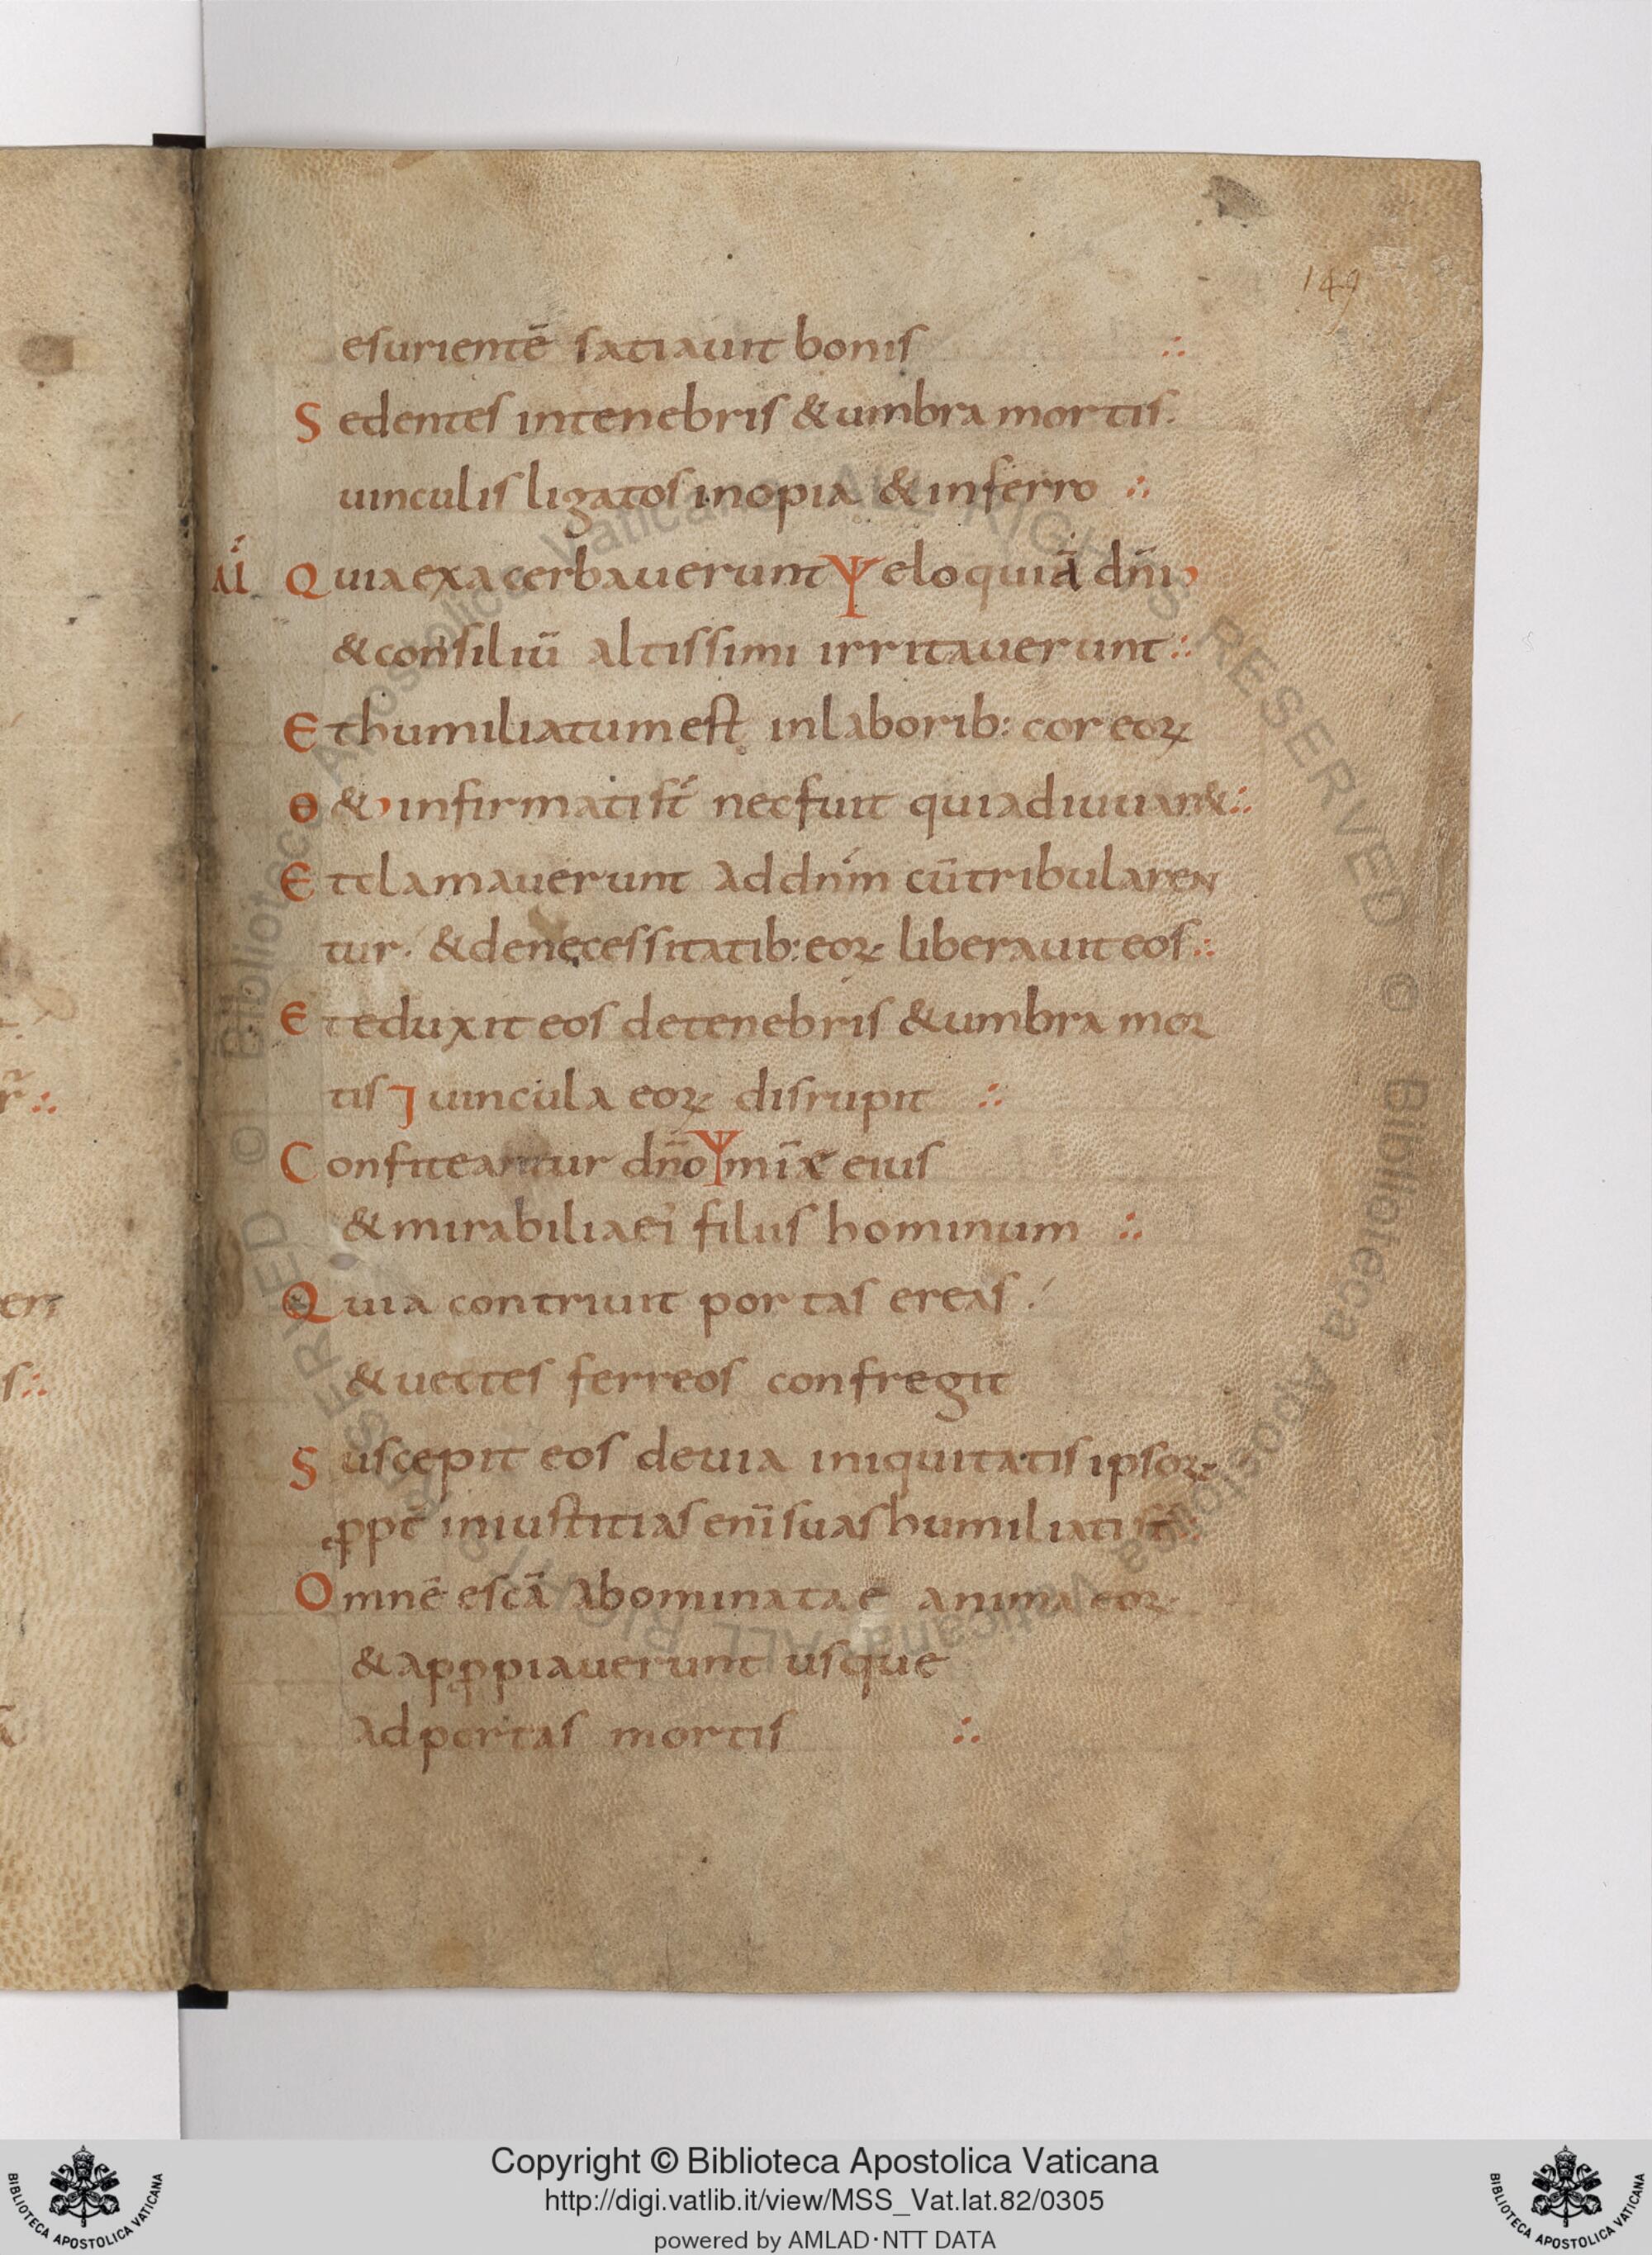 149
esurientē satiauit bonis ∴
Sedentes intenebris & umbra mortis.
uinculis ligatos inopia & inferro ∴
Quia exacerbauerunt Ψ eloquiā dn̄i
& consiliū altissimi irritauerunt ∴
Et humiliatum est inlaborib: cor eoꝝ
θ & infirmati st̄ nec fuit qui adiuuar& ∴
Et clamauerunt ad dnm̄ cū tribularen
tur. & denecessitatib: eoꝝ liberauit eos ∴
Et eduxit eos detenebris & umbra mor
tis ⁊ uincula eoꝝ disrupit ∴
Confiteantur dn̄o Ψ mīae eius
& mirabilia ei filiis hominum ∴
Quia contriuit portas ereas ./
& uectes ferreos confregit
Suscepit eos deuia iniquitatis ipsoꝝ
ꝓpt̄ iniustitias enī suas humiliati st̄ ∴
Omnē escā abominata e anima eoꝝ
& apꝓpiauerunt usque
ad portas mortis ∴
Copyright © Biblioteca Apostolica Vaticana
http://digi.vatlib.it/view/MSS_Vat.lat.82/0305
powered by AMLAD·NTT DATA
BIBLIOTECA APOSTOLICA VATICANA
BIBLIOTECA APOSTOLICA VATICANA